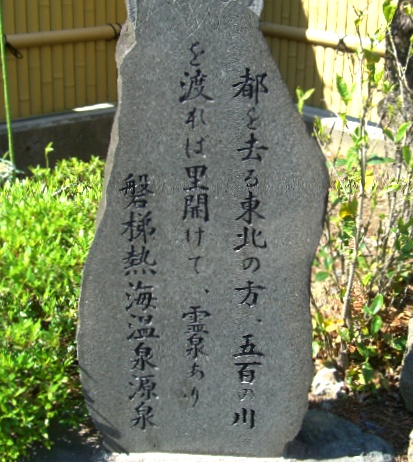 都を去る東北の方、五百の川
を渡れば里開けて、霊泉あり
磐梯熱海温泉源泉